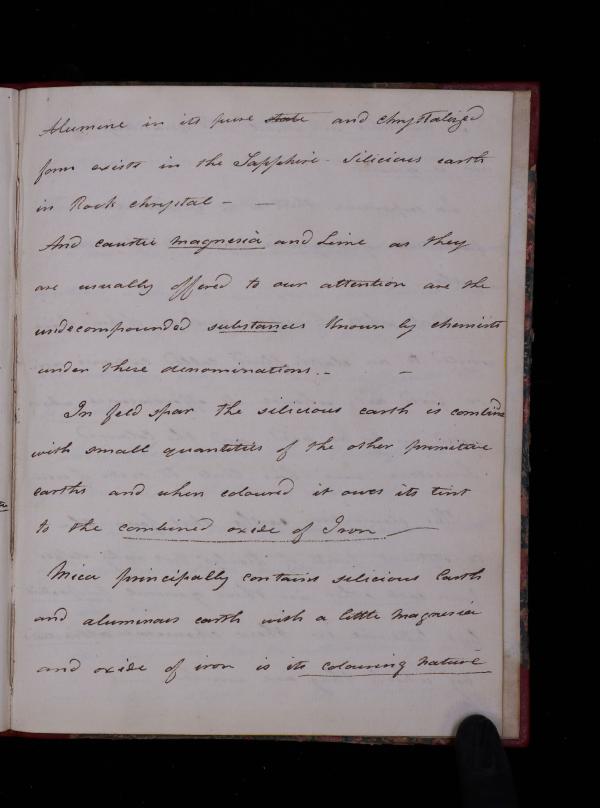 Alumine in its pure state and chrystalized
form exists in the Sapphire - Silicious earth
in Rock chrystal - -
And caustic magnesia and Lime as they
are usually offered to our attention are the
undecompounded substances known by chemists
under these denominations. - -
In feld spar the silicious earth is combine
with small quantities of the other primitive
earths and when coloured it owes its tint
to the combined oxide of Iron. -
Mica principally contains silicious Earth
and aluminous earth with a little Magnesia
and oxide of iron is its colouring nature